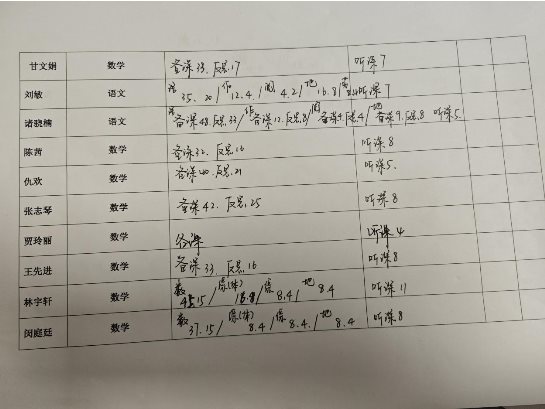 甘文娟 数学 备课33. 反思.17 听课7
刘敏 语文 35. 20/作12.4./阅4.2/地16.8/ 听课7
诸晓楠 语文 备课48.反思.33/作备课12.反思8/阅备课4.反思4/地备课9.反思.8 听课5.
陈茜 数学 备课32. 反思.16 听课8
仇欢 数学 备课40.反思.21 听课5.
张志琴 数学 备课42. 反思.25 听课8
贾玲丽 数学 听课4
王先进 数学 备课33. 反思.16 听课8
林宇轩 数学 数45.15/ 8.4/地8.4 听课11
闵庭廷 数学 数37.15/ 8.4/ 8.4./地8.4 听课.8